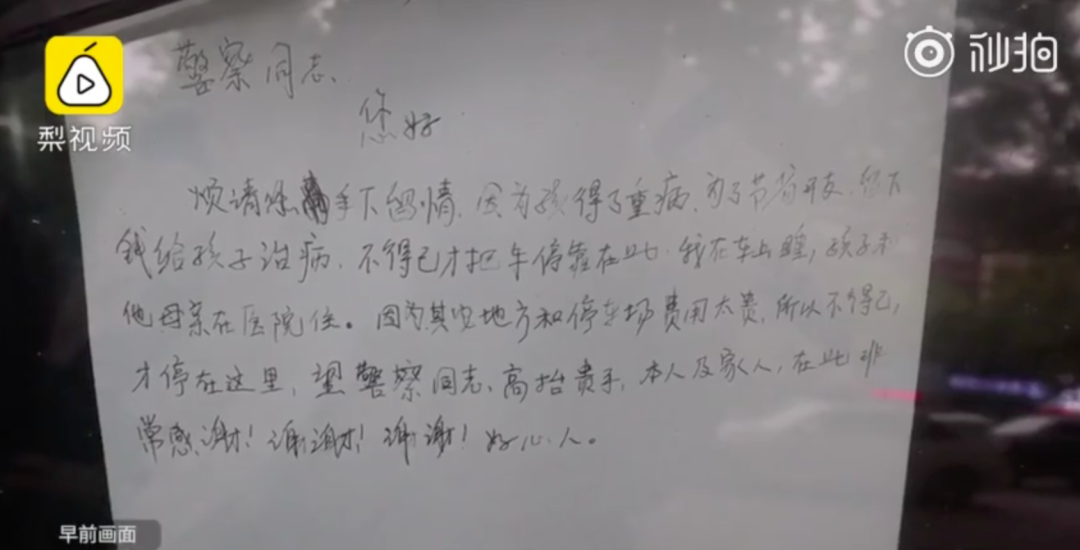 梨视频
秒拍
警察同志、
您好
烦请您手下留情、因为孩得了重病、为了节省开支、留下
钱给孩子治病、不得已才把车停靠在此、我在车上睡,孩子和
他母亲在医院住。因为其它地方和停车场费用太贵,所以不得已,
才停在这里,望警察同志、高抬贵手,本人及家人,在此非
常感谢!谢谢!谢谢!好心人。
早前画面